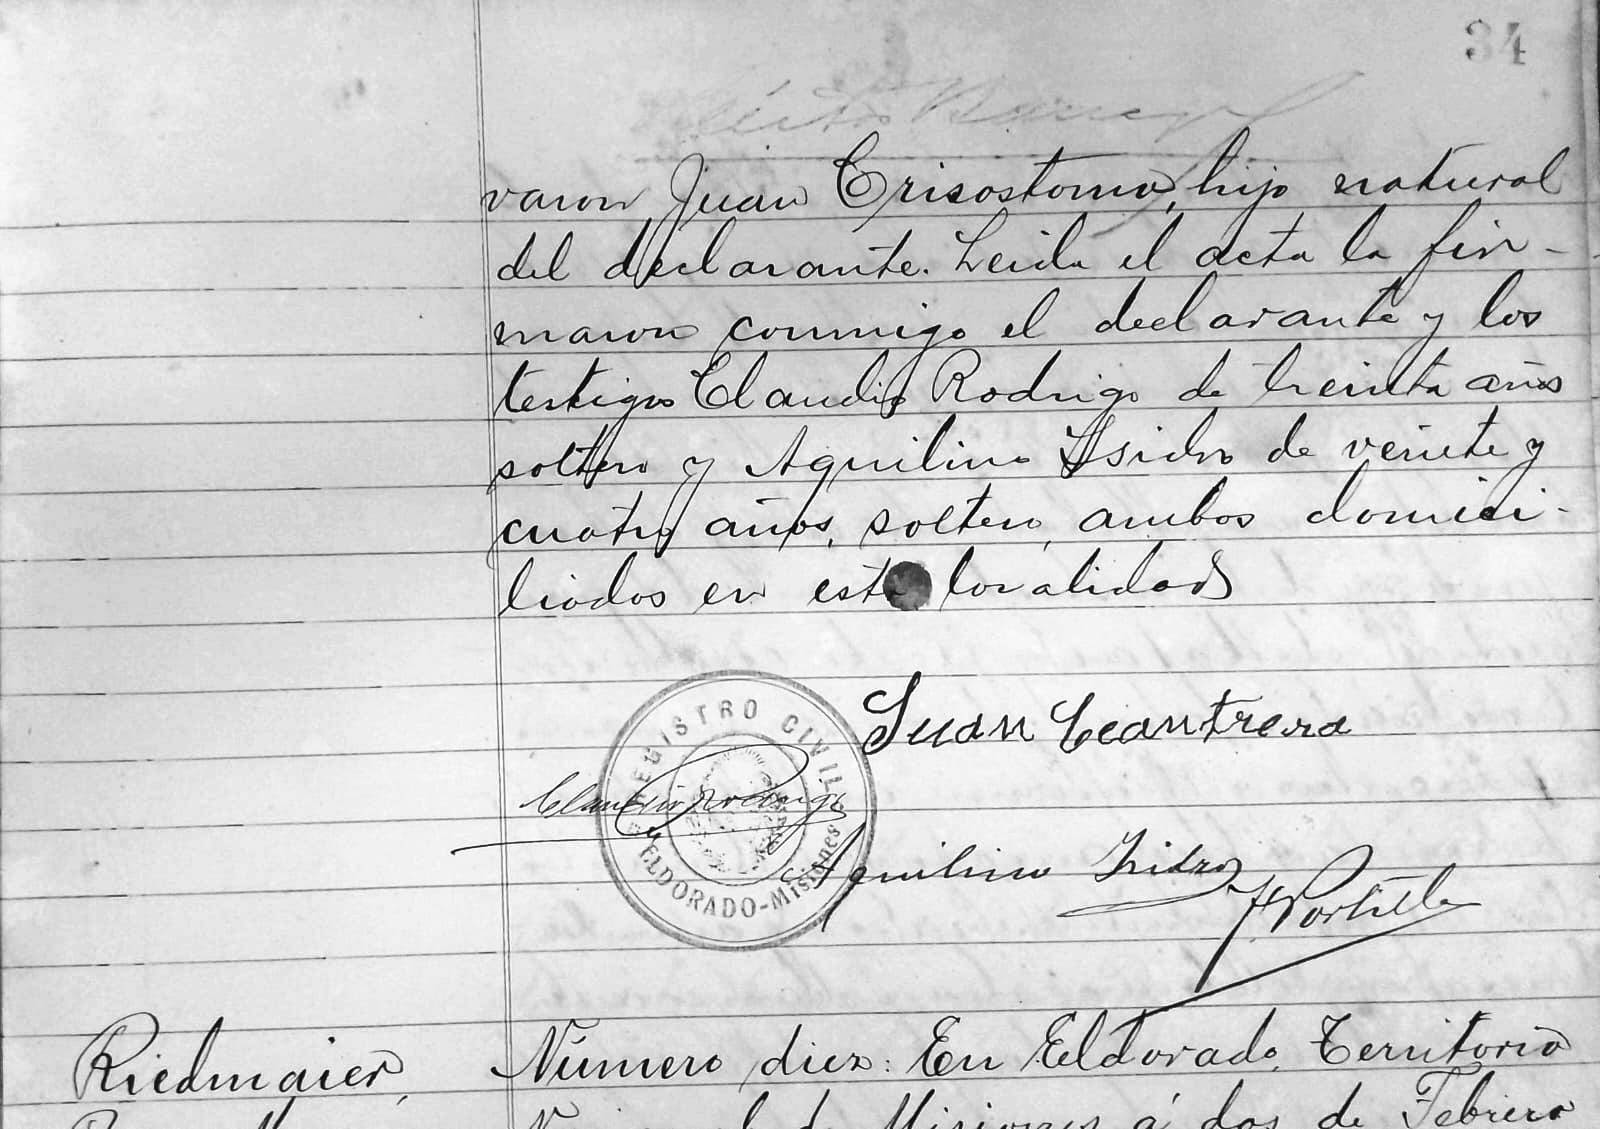 34
varon Juan Crisostomo, hijo natural
del declarante. Leida el acta la fir-
maron conmigo el declarante y los
testigos Claudio Rodrigo de treinta años
soltero y Aquilino Isidro de veinte y
cuatro años, soltero, ambos domici-
liados en esta localidad
Juan Ceantrera
REGISTRO CIVIL
ELDORADO-Misiones
Claudio Rodrigo
Aquilino Isidro
Portillo
Riedmaier,
Número diez: En Eldorado, Territorio
de Misiones á dos de Febrero